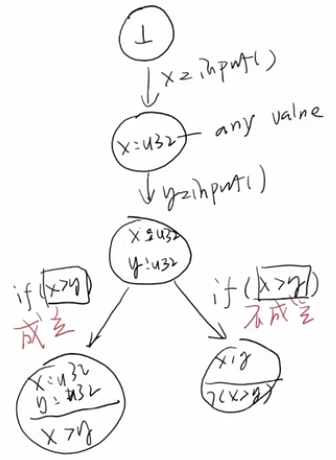 1
x=input()
x:u32
any value
y=input()
x:u32
y:u32
if(x>y)
成立
if(x>y)
不成立
x:u32
y:u32
x>y
x,y
¬(x>y)